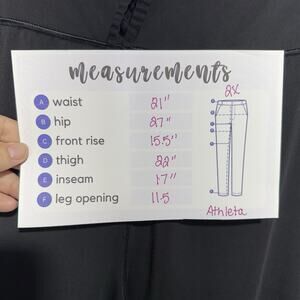 measurements
A waist 21"
B hip 27"
C front rise 15.5"
D thigh 22"
E inseam 17"
F leg opening 11.5
2X
Athleta